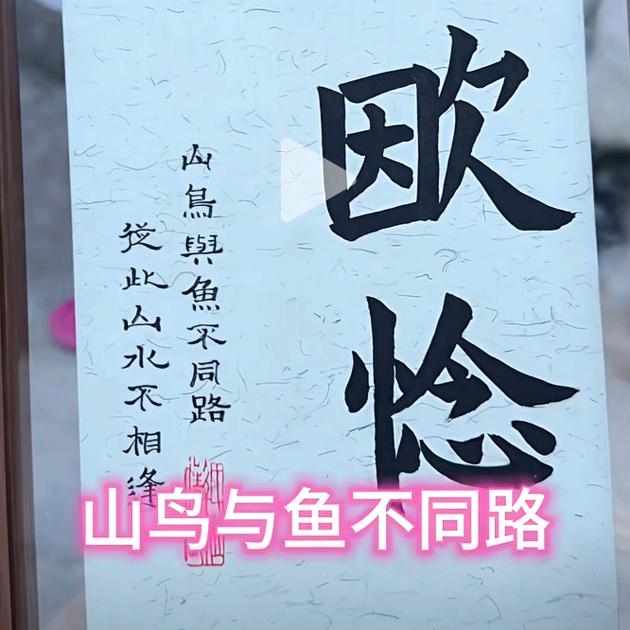 欭惗
山鳥與魚不同路
從此山水不相逢
山鸟与鱼不同路